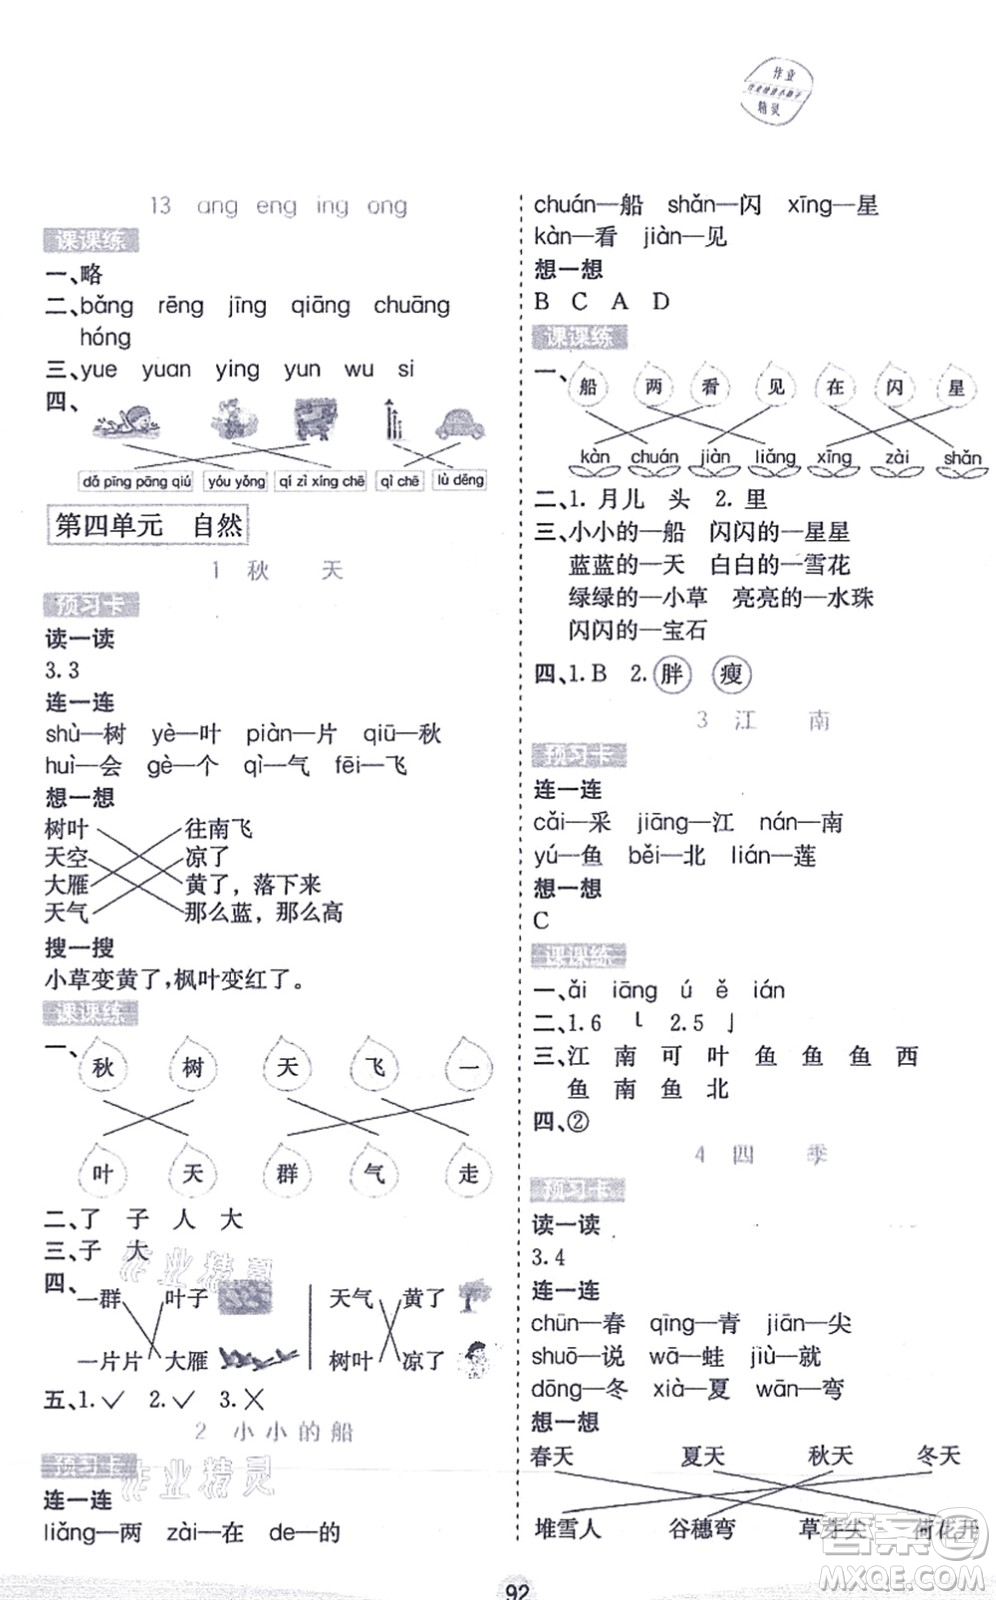 作业
精灵
13 ang eng ing ong
课课练
一、略
二、bǎng rēng jīng qiāng chuāng
hóng
三、yue yuan ying yun wu si
四、
dǎ pīng pāng qiú yóu yǒng qí zì xíng chē qì chē lù dēng
第四单元 自然
1 秋 天
预习卡
读一读
3.3
连一连
shù—树 yè—叶 piàn—片 qiū—秋
huì—会 gè—个 qì—气 fēi—飞
想一想
树叶 往南飞
天空 凉了
大雁 黄了，落下来
天气 那么蓝，那么高
搜一搜
小草变黄了，枫叶变红了。
课课练
一、秋 树 天 飞 一
叶 天 群 气 走
二、了 子 人 大
三、子 大
四、一群 叶子 天气 黄了
一片片 大雁 树叶 凉了
五、1.✓ 2.✓ 3.✗
2 小小的船
预习卡
连一连
liǎng—两 zài—在 de—的
chuán—船 shǎn—闪 xīng—星
kàn—看 jiàn—见
想一想
B C A D
课课练
一、船 两 看 见 在 闪 星
kàn chuán jiàn liǎng xīng zài shǎn
二、1.月儿 头 2.里
三、小小的—船 闪闪的—星星
蓝蓝的—天 白白的—雪花
绿绿的—小草 亮亮的—水珠
闪闪的—宝石
四、1.B 2.胖 瘦
3 江 南
预习卡
连一连
cǎi—采 jiāng—江 nán—南
yú—鱼 běi—北 lián—莲
想一想
C
课课练
一、ǎi iāng ú ě ián
二、1.6 ㇄ 2.5 亅
三、江 南 可 叶 鱼 鱼 鱼 西
鱼 南 鱼 北
四、②
4 四 季
预习卡
读一读
3.4
连一连
chūn—春 qīng—青 jiān—尖
shuō—说 wā—蛙 jiù—就
dōng—冬 xià—夏 wān—弯
想一想
春天 夏天 秋天 冬天
堆雪人 谷穗弯 草芽尖 荷花开
92
作业精灵
作业精灵
答案圈
MXQE.COM